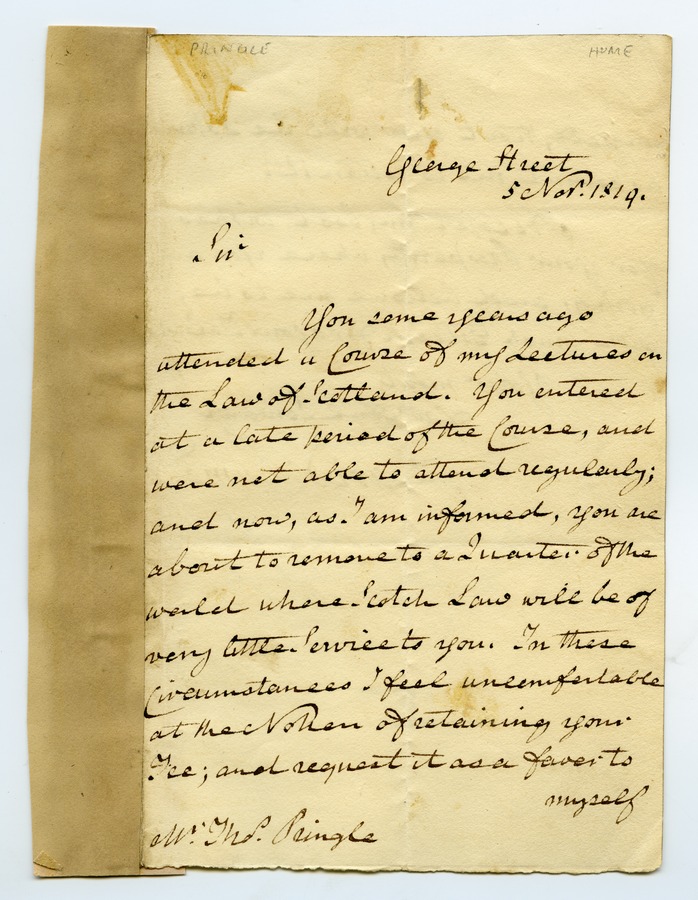 PRINGLE
HUME
George Street
5 Novr. 1819.
Sir
You some years ago
attended a Course of my Lectures on
the Law of Scotland. You entered
at a late period of the Course, and
were not able to attend regularly;
and now, as I am informed, you are
about to remove to a Quarter of the
world where Scotch Law will be of
very little Service to you. In these
Circumstances I feel uncomfortable
at the Notion of retaining your
Fee; and request it as a favor to
myself
Mr. Thos. Pringle